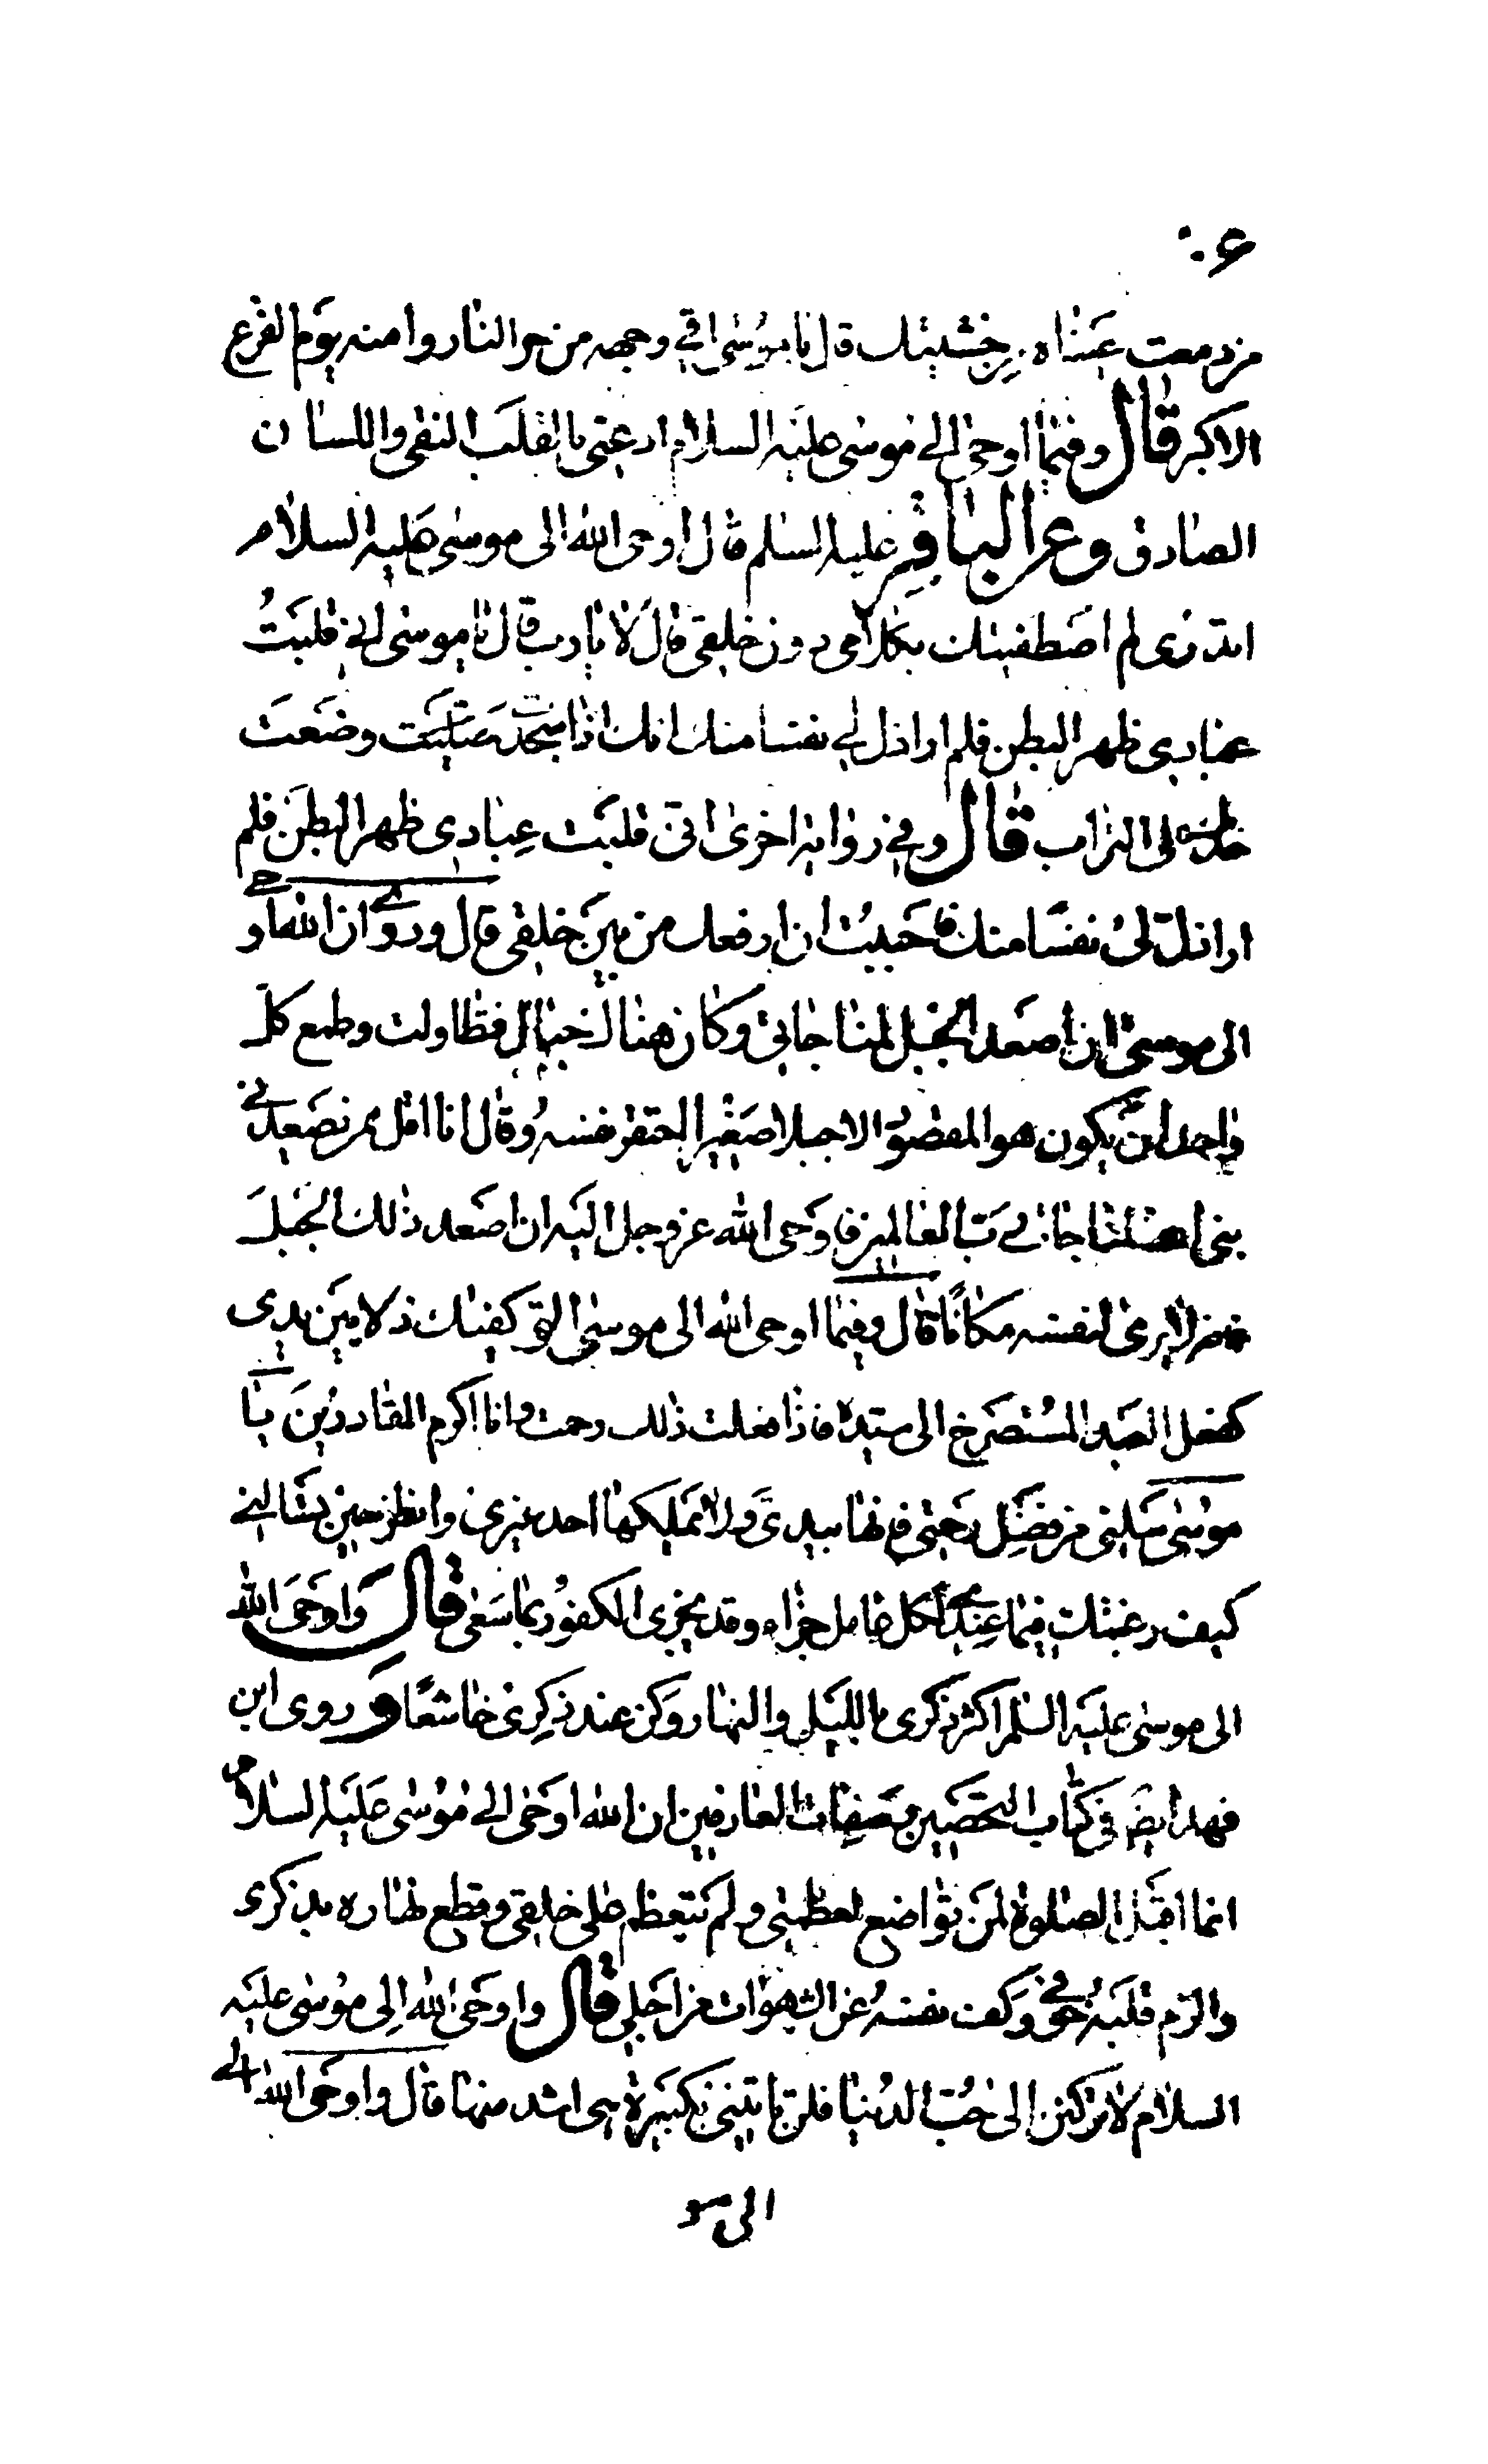 ۶۰
من دمعت عيناه من خشيتك قال يا موسى اقي وجهه من حر النار وامنه يوم الفزع
الاكبر قال وفيما اوحى الى موسى عليه السلام ادعنى بالقلب النقى واللسان
الصادق وعن الباقر عليه السلم قال اوحى الله الى موسى عليه السلام
اتدرى لم اصطفيتك بكلامى دون خلقى قال لا يا رب قال يا موسى انى قلبت
عبادى ظهر البطن فلم ار اذل لى نفسا منك انك اذا سجدت صليت وضعت
خدك على التراب قال وفى رواية اخرى انى قلبت عبادى ظهر البطن فلم
ار اذل لى نفسا منك فاحببت ان ارفعك من بين خلقى قال وروى ان الله اوحى
الى موسى ان اصعد الجبل لمناجاتى وكان هناك جبال فتطاولت وطمع كل
واحد ان يكون هو المقصود الا جبلا صغيرا احتقر نفسه وقال انا اقل من ان يصعدنى
نبى الله لمناجاة رب العالمين فاوحى الله عز وجل اليه ان اصعد ذلك الجبل
فانه لا يرى لنفسه مكانا قال وفيما اوحى الله الى موسى الق كفيك ذلا بين يدى
كفعل العبد المستصرخ الى سيده فاذا فعلت ذلك رحمت وانا اكرم القادرين يا
موسى سلنى من فضلى ورحمتى فانهما بيدى ولا يملكهما احد غيرى وانظر حين تسالنى
كيف رغبتك فيما عندى لكل عامل جزاء وقد يجزى الكفور بما سعى قال واوحى الله
الى موسى عليه السلم اكثر ذكرى بالليل والنهار وكن عند ذكرى خاشعا وروى ابن
فهد ايضا فى كتاب التحصين صفات العارفين ان الله اوحى الى موسى عليه السلام
انما اقبل الصلوة لمن تواضع لعظمتى ولم يتعظم على خلقى وقطع نهاره بذكرى
والزم قلبه خوفى وكف نفسه عن الشهوات من اجلى قال واوحى الله الى موسى عليه
السلام لا تركنن الى حب الدنيا فلن تاتينى بكبيرة هى اشد منها قال واوحى الله الى
الى مو